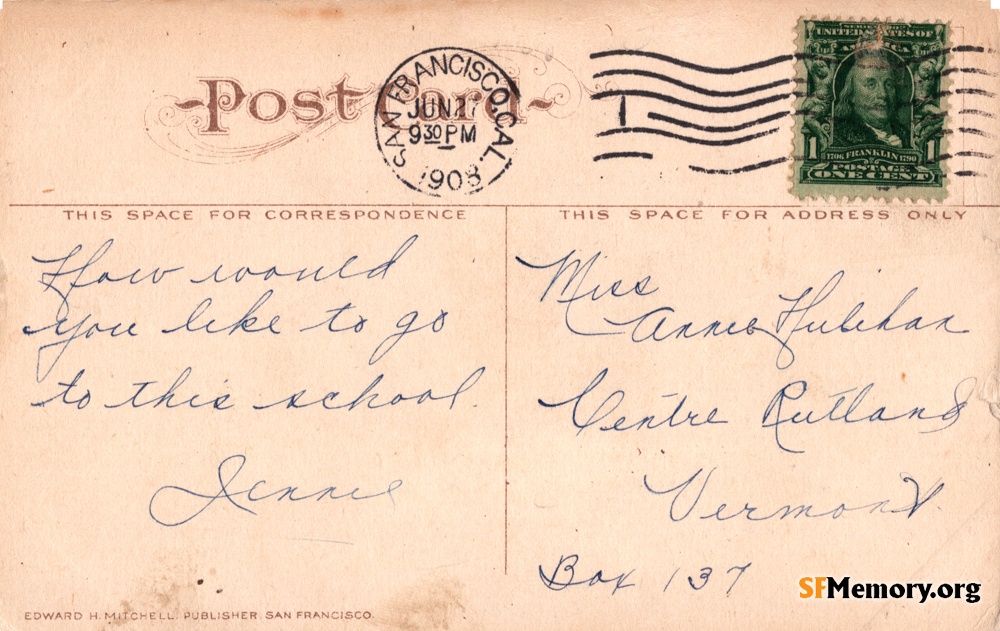 Post Card
SAN FRANCISCO, CAL.
JUN 27
9 30 PM
1908
1
SERIES 1902
UNITED STATES OF
AMERICA
1 1706 FRANKLIN 1790 1
POSTAGE
ONE CENT
THIS SPACE FOR CORRESPONDENCE
How would
you like to go
to this school.
Jennie
THIS SPACE FOR ADDRESS ONLY
Miss
Annie Hulihan
Centre Rutland
Vermont.
Box 137
EDWARD H. MITCHELL, PUBLISHER, SAN FRANCISCO.
SFMemory.org